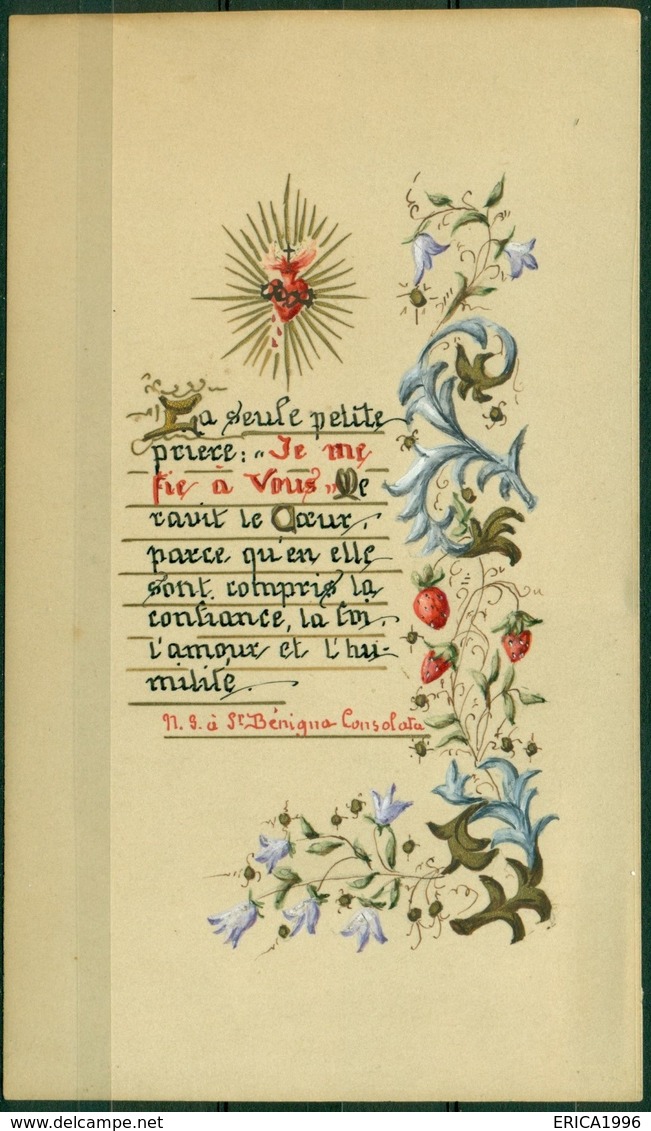 La seule petite
prière: "Je me
fie à Vous" Me
ravit le Cœur,
parce qu'en elle
sont compris la
confiance, la foi,
l'amour et l'hu-
milité.
N. S. à Sr Bénigna Consolata
ERICA1996